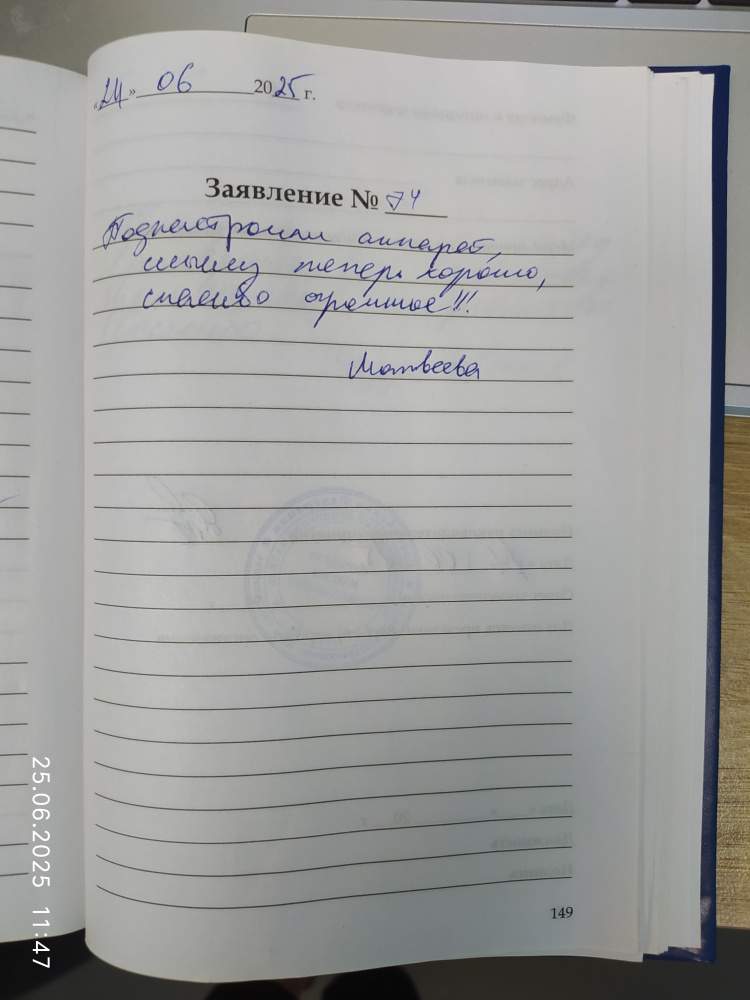 «24» 06 2025 г.
Заявление № 74
Поднастроили аппарат,
слышу теперь хорошо,
спасибо огромное!!!
Матвеева
149
25.06.2025 11:47